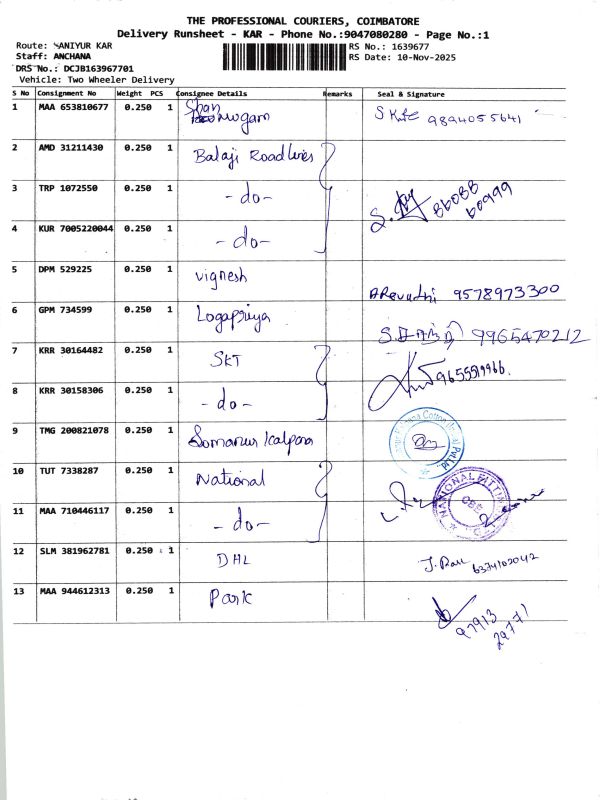 THE PROFESSIONAL COURIERS, COIMBATORE
Delivery Runsheet - KAR - Phone No.:9047080280 - Page No.:1
Route: SANIYUR KAR
RS No.: 1639677
Staff: ANCHANA
RS Date: 10-Nov-2025
DRS No.: DCJB163967701
Vehicle: Two Wheeler Delivery
S No Consignment No Weight PCS Consignee Details Remarks Seal & Signature
1 MAA 653810677 0.250 1 Shanmugam 9894055641
2 AMD 31211430 0.250 1 Balaji Roadlines
3 TRP 1072550 0.250 1 -do- 86088 60999
4 KUR 7005220044 0.250 1 -do-
5 DPM 529225 0.250 1 vignesh Revathi 9578973300
6 GPM 734599 0.250 1 Logapriya 9965470212
7 KRR 30164482 0.250 1 SKT 9655519966.
8 KRR 30158306 0.250 1 -do-
9 TMG 200821078 0.250 1 Somanur kalpana Cotton
10 TUT 7338287 0.250 1 National NATIONAL
11 MAA 710446117 0.250 1 -do- CBE
12 SLM 381962781 0.250 1 DHL 6374102042
13 MAA 944612313 0.250 1 Park 97913
29771